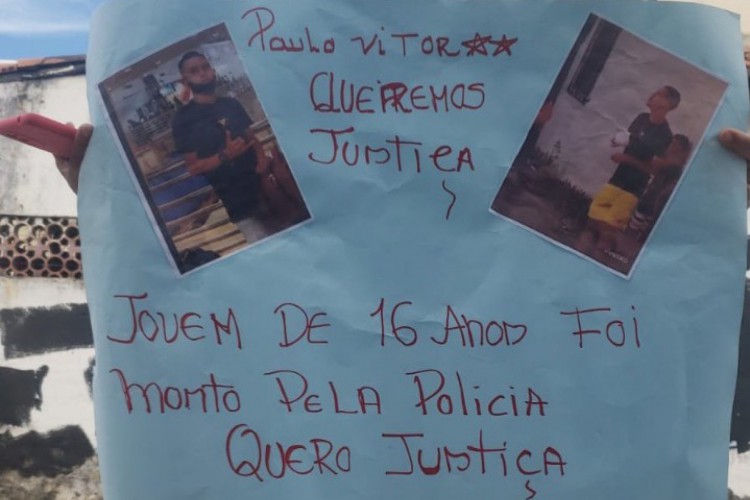 Paulo Vitor ★★
QUEIREMOS
JUSTIÇA
JOVEM DE 16 ANOS FOI
MORTO PELA POLICIA
QUERO JUSTIÇA